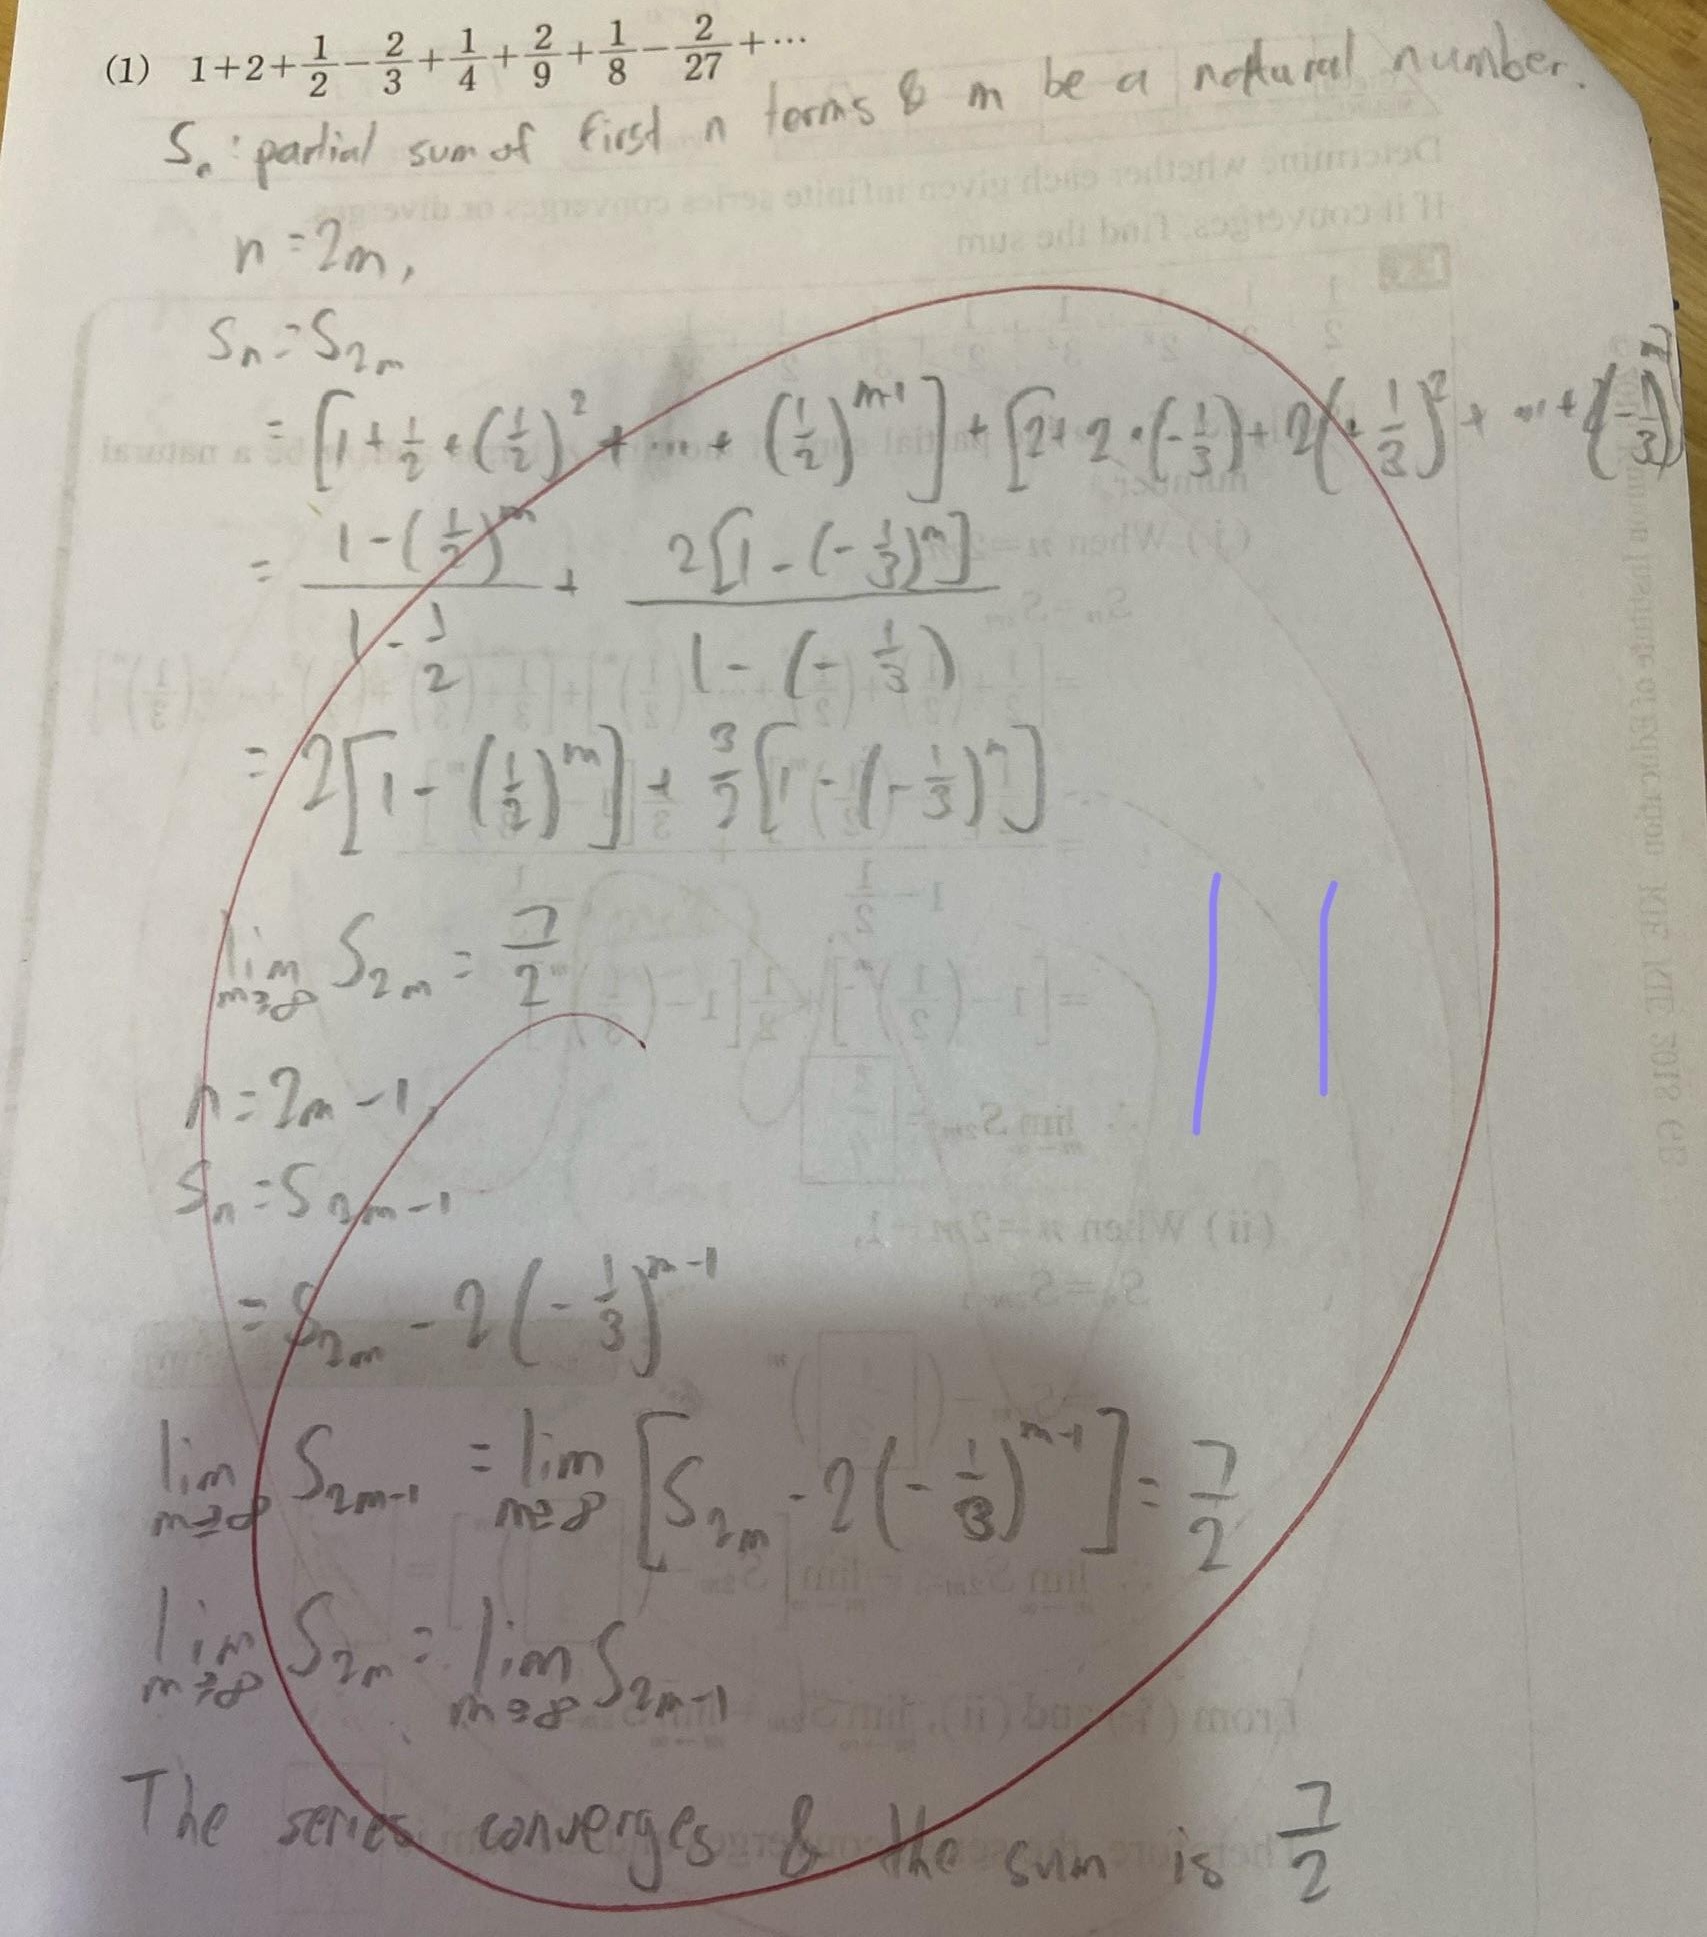 (1) 1+2+1/2−2/3+1/4+2/9+1/8−2/27+⋯
Sₙ : partial sum of first n terms & m be a natural number.
n = 2m,
Sₙ = S₂ₘ
= [1 + 1/2 + (1/2)² + ⋯ + (1/2)^(m-1)] + [2 + 2·(-1/3) + 2(-1/3)² + ⋯ + 2(-1/3)
= (1-(1/2)^m)/(1-1/2) + (2[1-(-1/3)^m])/(1-(-1/3))
= 2[1-(1/2)^m] + 3/2[1-(-1/3)^n]
lim m→∞ S₂ₘ = 7/2
n = 2m-1,
Sₙ = S₂ₘ₋₁
= S₂ₘ - 2(-1/3)^(m-1)
lim m→∞ S₂ₘ₋₁ = lim m→∞ [S₂ₘ - 2(-1/3)^(m-1)] = 7/2
lim m→∞ S₂ₘ = lim m→∞ S₂ₘ₋₁
The series converges & the sum is 7/2